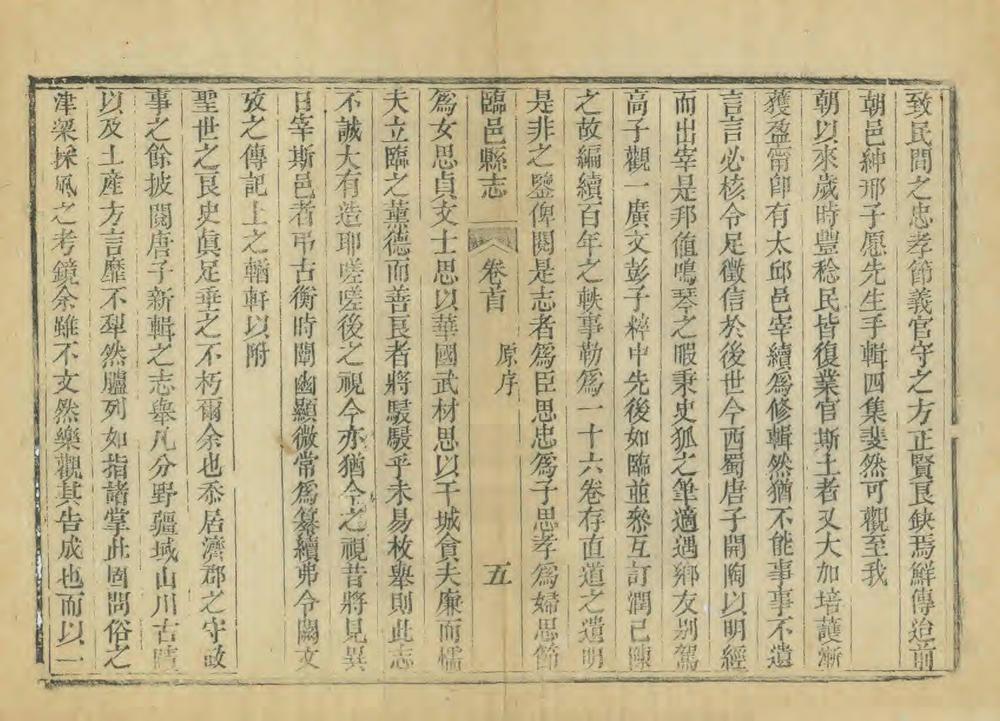 致民間之忠孝節義官守之方正賢良缺焉鮮傳迨前
朝邑紳邢子愿先生手輯四集斐然可觀至我
朝以來歲時豐稔民皆復業官斯土者又大加培護漸
獲盈甯卽有太邱邑宰續爲修輯然猶不能事事不遺
言言必核令足徵信於後世今西蜀唐子開陶以明經
而出宰是邦値鳴琴之暇秉史狐之筆適遇鄉友別駕
高子觀一廣文彭子粹中先後如臨並叅互訂潤已陳
之故編續百年之軼事勒爲一十六卷存直道之遺明
是非之鑒俾閱是志者爲臣思忠爲子思孝爲婦思節
臨邑縣志 卷首 原序 五
爲女思貞文士思以華國武材思以干城貪夫廉而懦
夫立臨之薰德而善良者將駸駸乎未易枚舉則此志
不誠大有造耶嗟嗟後之視今亦猶今之視昔將見異
日宰斯邑者弔古衡時闡幽顯微常爲纂續弗令闕文
攷之傳記上之輶軒以附
聖世之良史眞足垂之不朽爾余也忝居濟郡之守政
事之餘披閱唐子新輯之志舉凡分野疆域山川古蹟
以及土產方言靡不犁然臚列如指諸掌此固問俗之
津梁採風之考鏡余雖不文然樂觀其告成也而以一